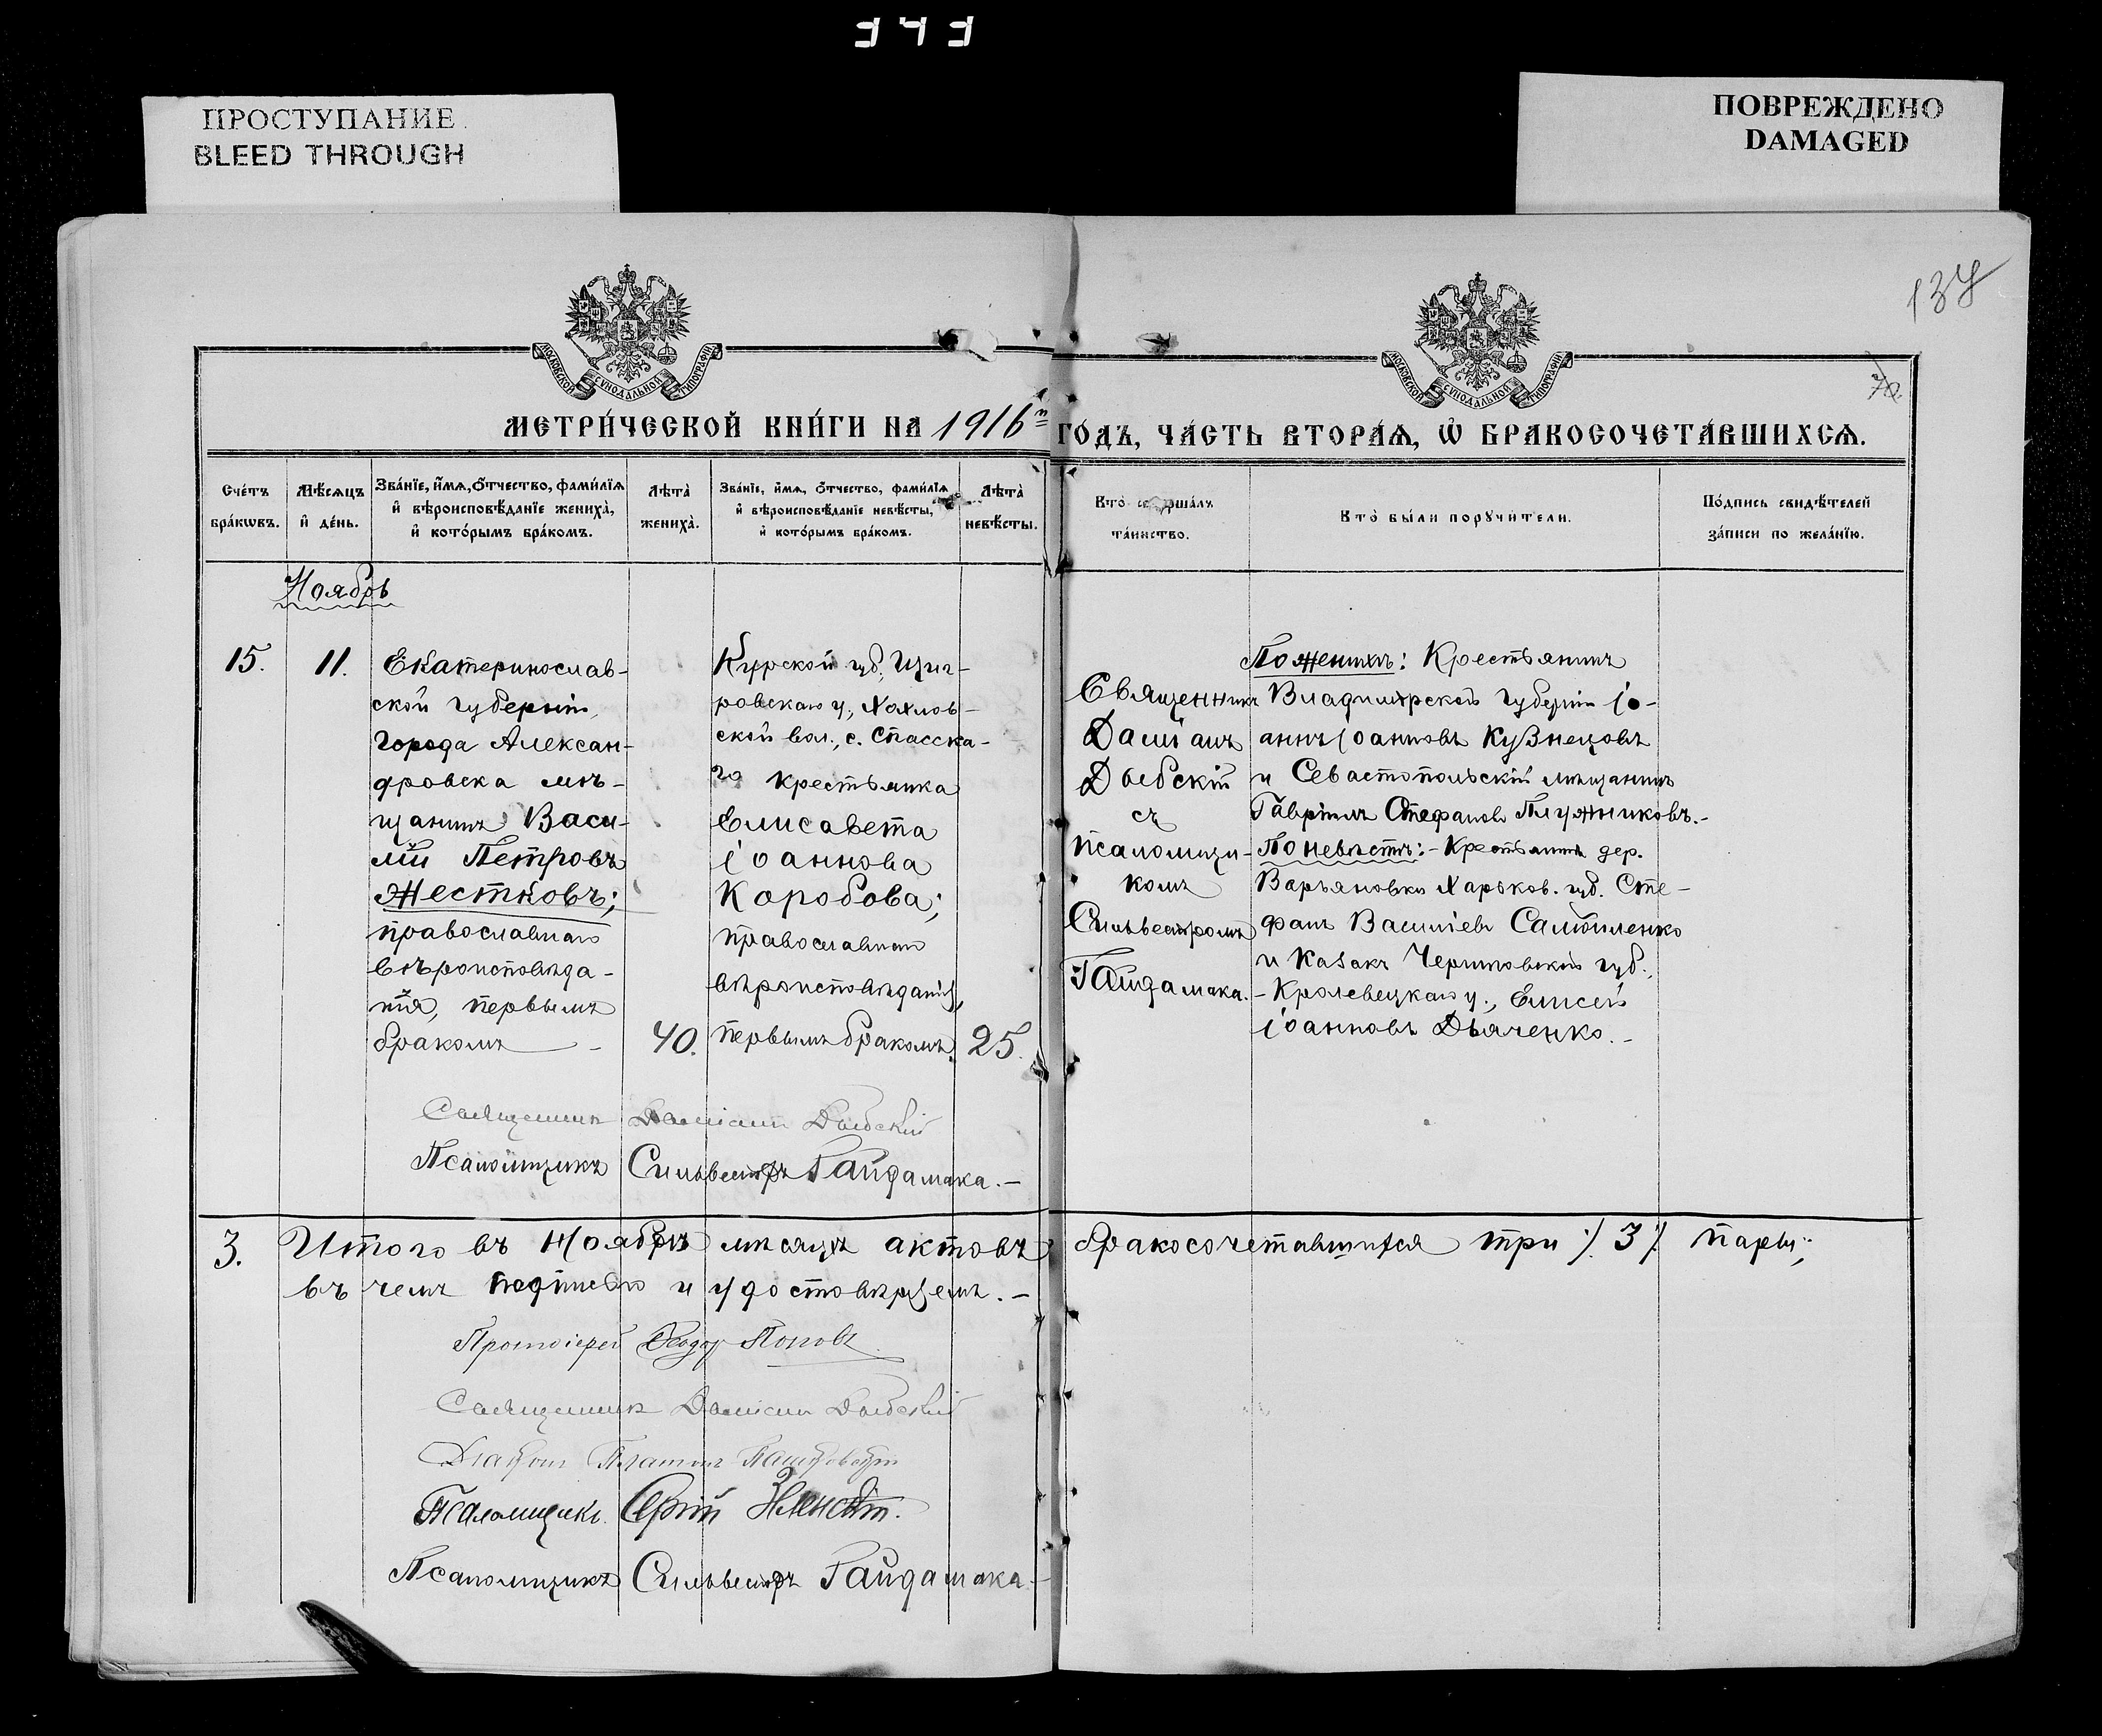 343
ПРОСТУПАНИЕ
BLEED THROUGH
ПОВРЕЖДЕНО
DAMAGED
МОСКОВСКОЙ СѴНОДАЛЬНОЙ ТИПОГРАФІИ
МОСКОВСКОЙ СѴНОДАЛЬНОЙ ТИПОГРАФІИ
МЕТРИ́ЧЕСКОЙ КНИ́ГИ НА 1916й ГО́ДЪ, ЧА́СТЬ ВТОРА́Ѧ, Ѡ БРАКОСОЧЕТА́ВШИХСѦ.
Сче́тъ бра́кѡвъ.
Мѣ́сѧцъ и҆ де́нь.
Зва́нїе, и҆́мѧ, ѻ҆́тчество, фами́лїѧ и҆ вѣроисповѣ́данїе жениха̀, и҆ кото́рымъ бра́комъ.
Лѣта̀ жениха̀.
Зва́нїе, и҆́мѧ, ѻ҆́тчество, фами́лїѧ и҆ вѣроисповѣ́данїе невѣ́сты, и҆ кото́рымъ бра́комъ.
Лѣта̀ невѣ́сты.
Кто̀ соверша́лъ та́инство.
Кто̀ бы́ли порꙋчи́тели.
По́дпись свидѣ́телей за́писи по жела́нїю.
Ноябрь
15.
11.
Екатеринослав-
ской губерніи,
города Алексан-
дровска мѣ-
щанинъ Васи-
лій Петровъ
Жестковъ;
православнаго
вѣроисповѣда-
нія, первымъ
бракомъ
40.
Курской губ., Щиг-
ровскаго у., Хохлов-
ской вол., с. Спасска-
го крестьянка
Елисавета
Іоаннова
Коробова;
православнаго
вѣроисповѣданія,
первымъ бракомъ.
25.
Священникъ
Даміанъ
Дыбскій
съ
псаломщи-
комъ
Сильвестромъ
Гайдамака.
По женихѣ: Крестьянинъ
Владимірской губерніи Іо-
аннъ Іоанновъ Кузнецовъ
и Севастопольскій мѣщанинъ
Гавріилъ Стефановъ Плужниковъ.-
По невѣстѣ:- Крестьянинъ дер.
Варьяновки Харьков. губ. Сте-
фанъ Василіевъ Самойленко
и казакъ Черниговской губ.,
Кролевецкаго у., Елисей
Іоанновъ Дьяченко.-
Священникъ Даміанъ Дыбскій
Псаломщикъ Сильвестръ Гайдамака.-
3. Итого въ Ноябрѣ мѣсяцѣ актовъ бракосочетавшихся три ./. 3 ./. пары;
въ чемъ подписью и удостовѣряемъ.-
Протоіерей Ѳеодоръ Поповъ
Священникъ Даміанъ Дыбскій
Діаконъ Платонъ
Псаломщикъ Сергій
Псаломщикъ Сильвестръ Гайдамака